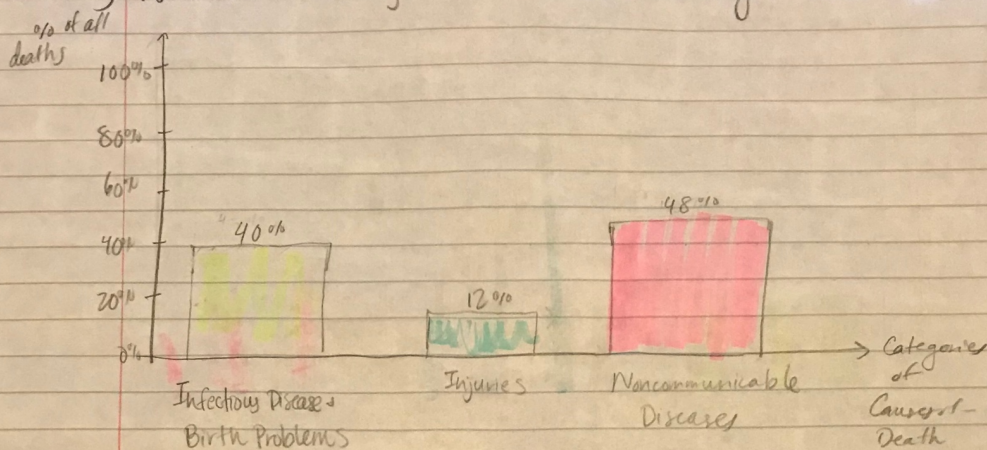 % of all
deaths
100%
80%
60%
40%
20%
0%
40%
12%
48%
Infectious Disease +
Birth Problems
Injuries
Noncommunicable
Diseases
Categories
of
Causes of
Death